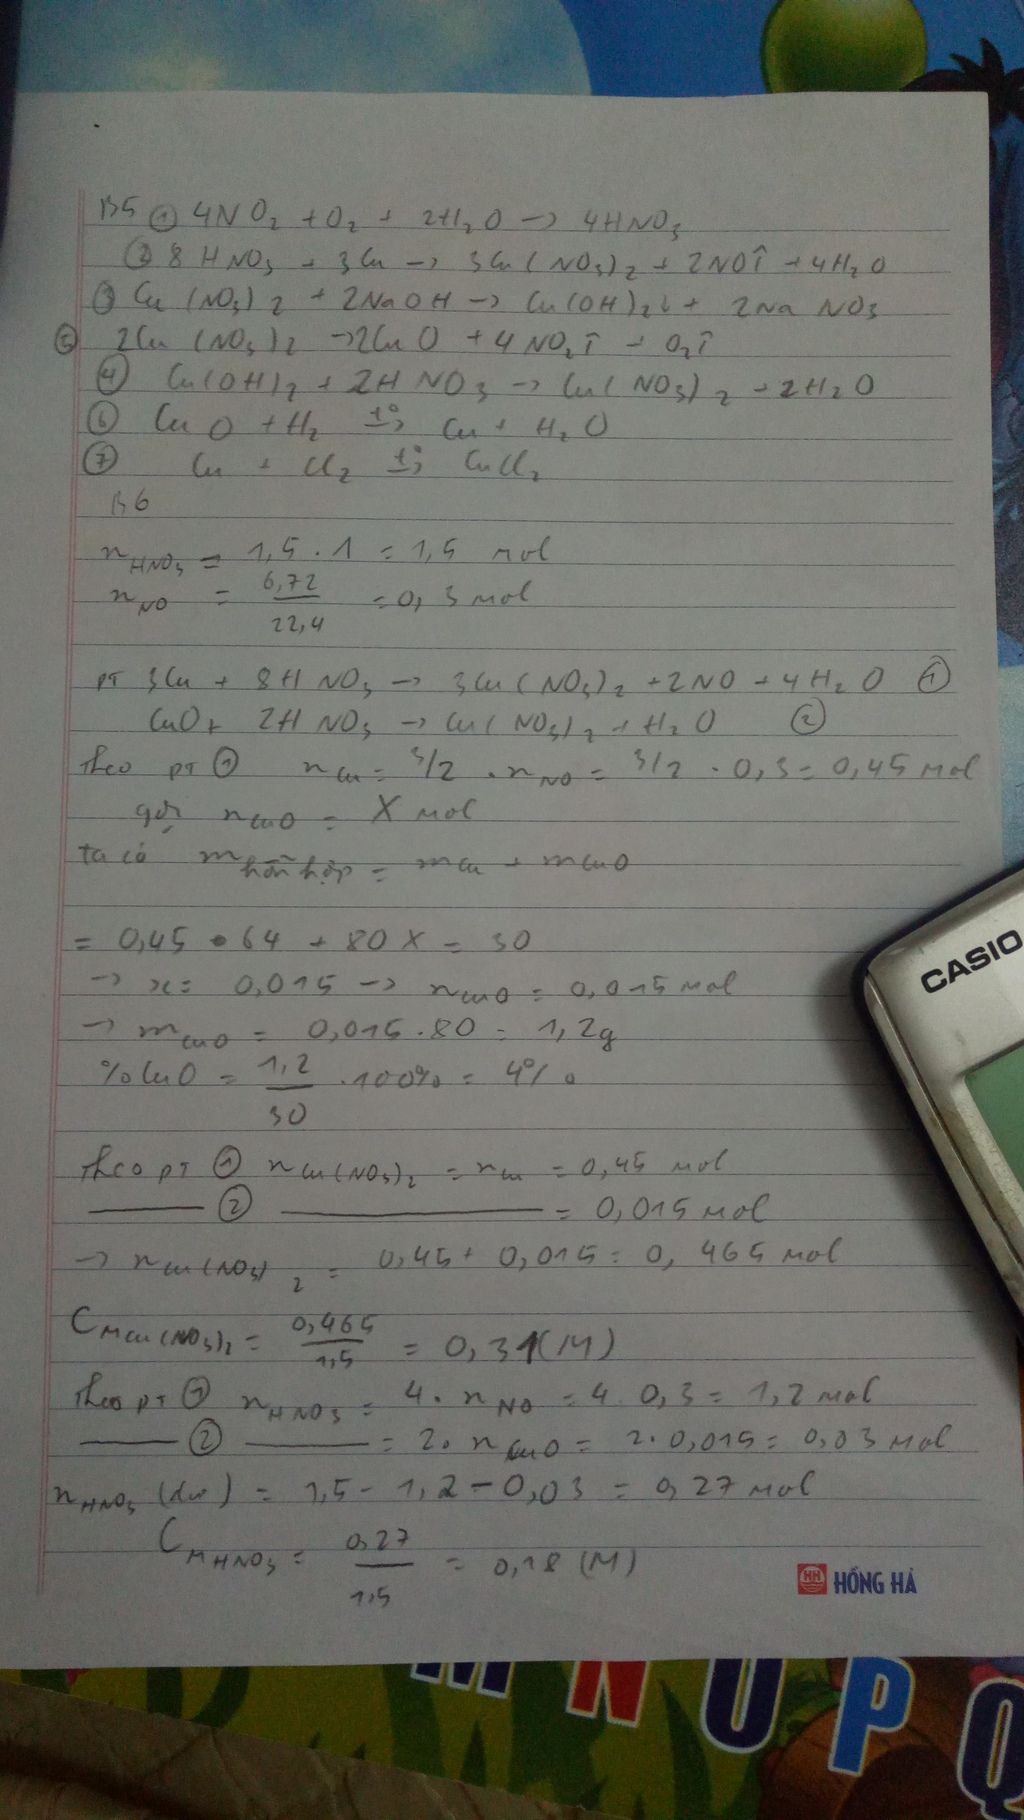 B5 ① 4NO₂ + O₂ + 2H₂O → 4HNO₃
② 8HNO₃ + 3Cu → 3Cu(NO₃)₂ + 2NO↑ + 4H₂O
③ Cu(NO₃)₂ + 2NaOH → Cu(OH)₂↓ + 2NaNO₃
⑤ 2Cu(NO₃)₂ → 2CuO + 4NO₂↑ + O₂↑
④ Cu(OH)₂ + 2HNO₃ → Cu(NO₃)₂ + 2H₂O
⑥ CuO + H₂ t°→ Cu + H₂O
⑦ Cu + Cl₂ t°→ CuCl₂
B6
n HNO₃ = 1,5 . 1 = 1,5 mol
n NO = 6,72 / 22,4 = 0,3 mol
PT 3Cu + 8HNO₃ → 3Cu(NO₃)₂ + 2NO + 4H₂O ①
CuO + 2HNO₃ → Cu(NO₃)₂ + H₂O ②
theo pt ① n Cu = 3/2 . n NO = 3/2 . 0,3 = 0,45 mol
gọi n CuO = X mol
ta có m hỗn hợp = m Cu + m CuO
= 0,45 . 64 + 80X = 30
→ x = 0,015 → n CuO = 0,015 mol
→ m CuO = 0,015 . 80 = 1,2g
% CuO = 1,2 / 30 . 100% = 4%
Theo pt ① n Cu(NO₃)₂ = n Cu = 0,45 mol
——— ② ——————— = 0,015 mol
→ n Cu(NO₃)₂ = 0,45 + 0,015 = 0,465 mol
C M Cu(NO₃)₂ = 0,465 / 1,5 = 0,31 (M)
theo pt ① n HNO₃ = 4 . n NO = 4 . 0,3 = 1,2 mol
——— ② ——— = 2 . n CuO = 2 . 0,015 = 0,03 mol
n HNO₃ (dư) = 1,5 - 1,2 - 0,03 = 0,27 mol
C M HNO₃ = 0,27 / 1,5 = 0,18 (M)
HH HỒNG HÀ
CASIO
M N U P Q